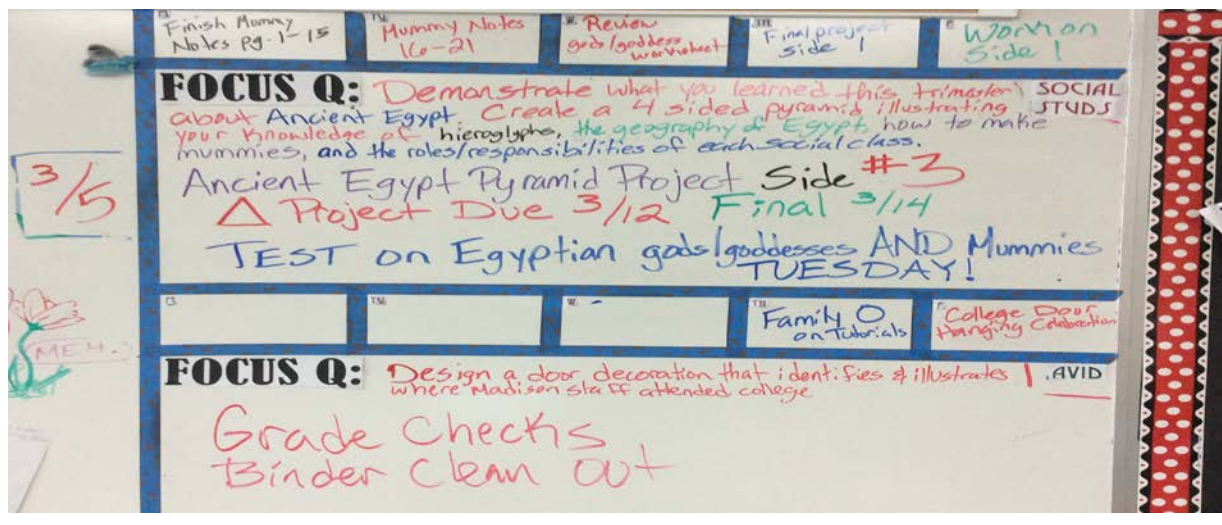 M.
Finish Mummy
Notes pg. 1-15
TU.
Mummy Notes
16-21
W.
Review
gods/goddess
worksheet
TH.
Final project
side 1
F.
Work on
Side 1
FOCUS Q: Demonstrate what you learned this trimester
SOCIAL
STUDS
about Ancient Egypt. Create a 4 sided pyramid illustrating
your knowledge of hieroglyphs, the geography of Egypt, how to make
mummies, and the roles/responsibilities of each social class.
3/5
Ancient Egypt Pyramid Project Side #3
Project Due 3/12 Final 3/14
TEST on Egyptian gods/goddesses AND Mummies
TUESDAY!
TU.
W.
TH.
Family O
on Tutorials
F.
College Door
Hanging Celebration
MEH.
FOCUS Q: Design a door decoration that identifies & illustrates
AVID
where Madison staff attended college
Grade Checks
Binder Clean Out